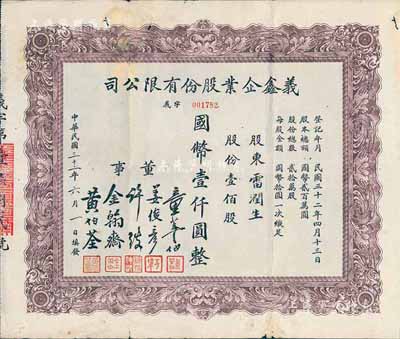 義鑫企業股份有限公司
義字 001782
登記年月 民國三十二年四月十三日
股本總額 國幣貳百萬圓
股份總數 貳拾萬股
每股金額 國幣拾圓一次繳足
股東 雷潤生
股份壹佰股
國幣壹仟圓整
董事
姜俊彥
金翰齋
黃伯荃
中華民國三十二年六月一日填發